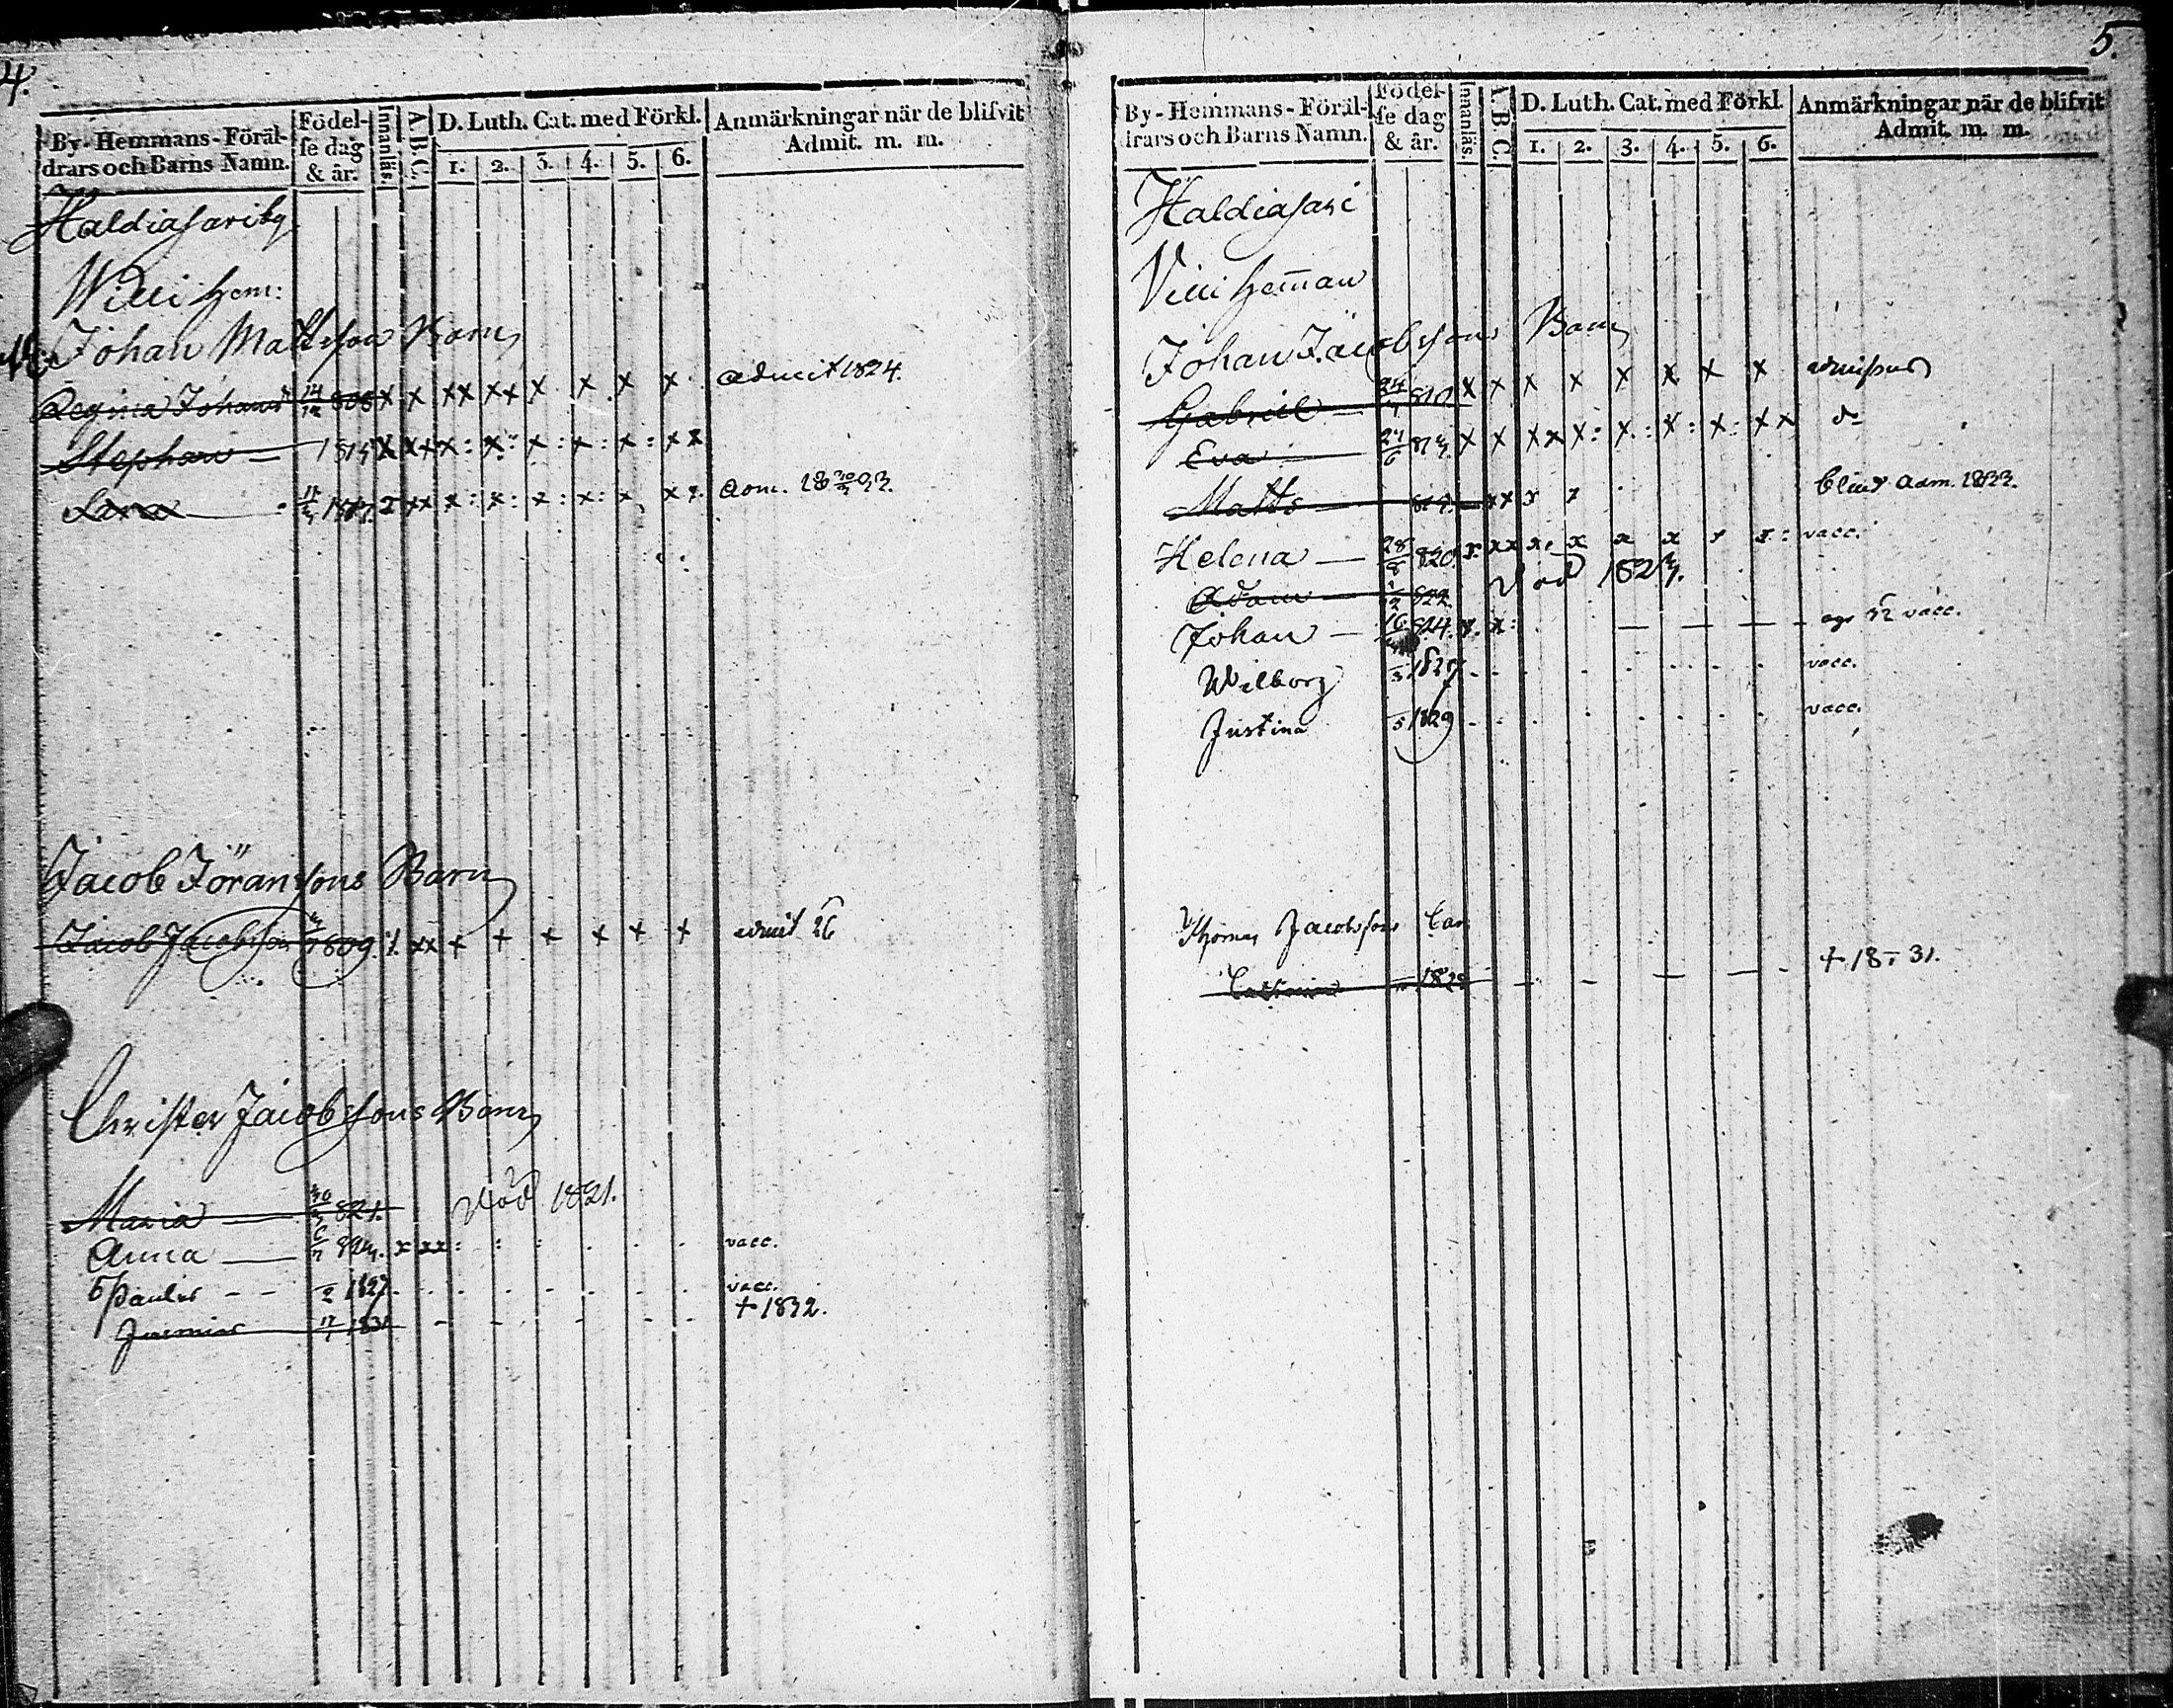 4.
By- Hemmans- Föräl-
drars och Barns Namn.
Födel-
se dag
& år.
Innanläs.
A.B.C.
D. Luth. Cat. med Förkl.
1. 2. 3. 4. 5. 6.
Anmärkningar när de blifvit
Admit. m. m.
Haldiasariby
Willi Hem:
Johan Mattsson Barn
Regina Johans 14/12 808 x x xx xx x x x x admit 1824.
Stephan — x xx x: x: x: x: x: xx
Lara — xx x: x: x: x: x xx adm.
Jacob Jöranssons Barn
Jacob Jacobsson 1809. xx x + x x x x admit 26
Christer Jacobssons Barn
Maria — 821. död 1821.
Anna — x xx: : : . . . vacc.
Paulus - - 2 1827. vacc.
17/1 1831 - - - - - + 1832.
5.
By- Hemmans- Föräl-
drars och Barns Namn.
Födel-
se dag
& år.
Innanläs.
A.B.C.
D. Luth. Cat. med Förkl.
1. 2. 3. 4. 5. 6.
Anmärkningar när de blifvit
Admit. m. m.
Haldiasari
Villi Hem̄an
Johan Jacobssons Barn
Gabriel — 24 810 x x x x x x x x
Eva — x x xx x: x: x: x: xx
Matts — xx x x adm. 1833.
Helena — 28/8 820 x xx x. x x x x x: vacc.
Adam — 822 död
Johan — 16 824. x. x: — — — vacc.
Wilborg 1827 vacc.
Justina 5 1829 vacc.
Thomas Jacobssons
— — — — + 18 - 31.